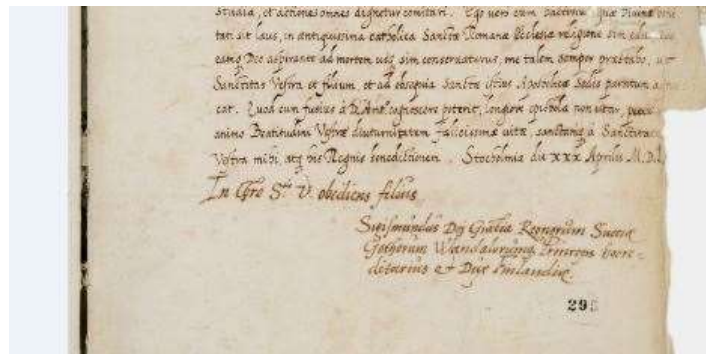 Studia, et actiones omnes dignetur comitari. Ego vero cum Divinæ
tati sit laus, in antiquissima catholica Sanctæ Romanæ Ecclesiæ religione sim
eamq̨ Deo aspirante ad mortem usq̨ sim conservaturus, me talem semper præstabo, ut
Sanctitas Vestra et filium, et ad obsequia Sanctæ istius Apostolicæ Sedis paratum
cat. Quod cum fusius à cognoscere poterit, longiore epistola non utar,
animo Beatitudini Vestræ diuturnitatem fælicissimæ vitæ, sanctamq̨ à
Vestra mihi, atq̨ his Regnis benedictionem. Stocholmiæ die xxx Aprilis M.D.
In Chro S.tis V. obediens filius
Sigismundus Dei Gratia Regnorum Sueciæ
Gothorum Wandalorumq̨ Princeps haere-
ditarius et Dux Finlandiæ.
295